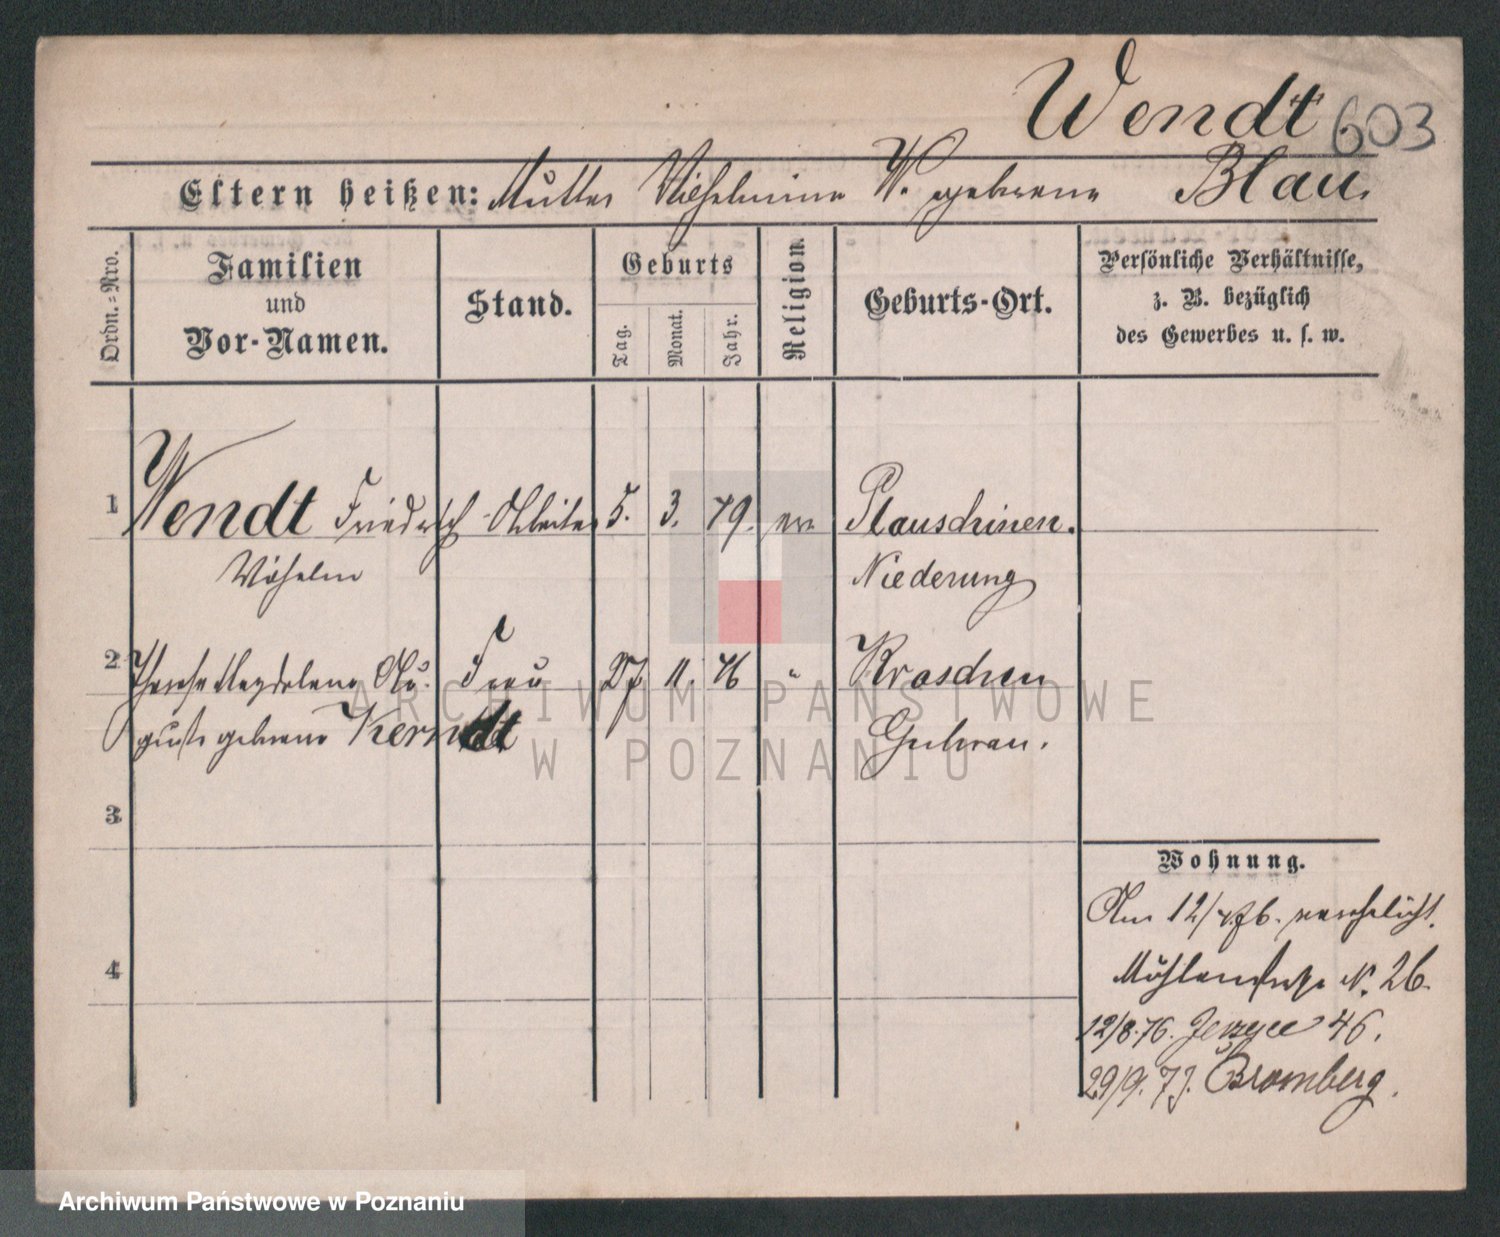 Wendt 603
Eltern heißen: Mutter Wilhelmine W. geborene Blau.
Ordn.=Nro.
Familien
und
Vor-Namen.
Stand.
Geburts
Tag.
Monat.
Jahr.
Religion.
Geburts-Ort.
Persönliche Verhältnisse,
z. B. bezüglich
des Gewerbes u. s. w.
1 Wendt Friedrich Arbeiter 5. 3. 49. ev. Plauschinen.
Wilhelm Niederung
2 Therese Magdalena Au- Frau 27 11. 46 " Kroschen
guste geborene Kerndt
3
4
Wohnung.
Am 12/4.76. verehelicht.
Mühlenstraße N. 26.
12/8.76. Jerzyce 46.
29/9.77. Bromberg.
ARCHIWUM PAŃSTWOWE
W POZNANIU
Archiwum Państwowe w Poznaniu